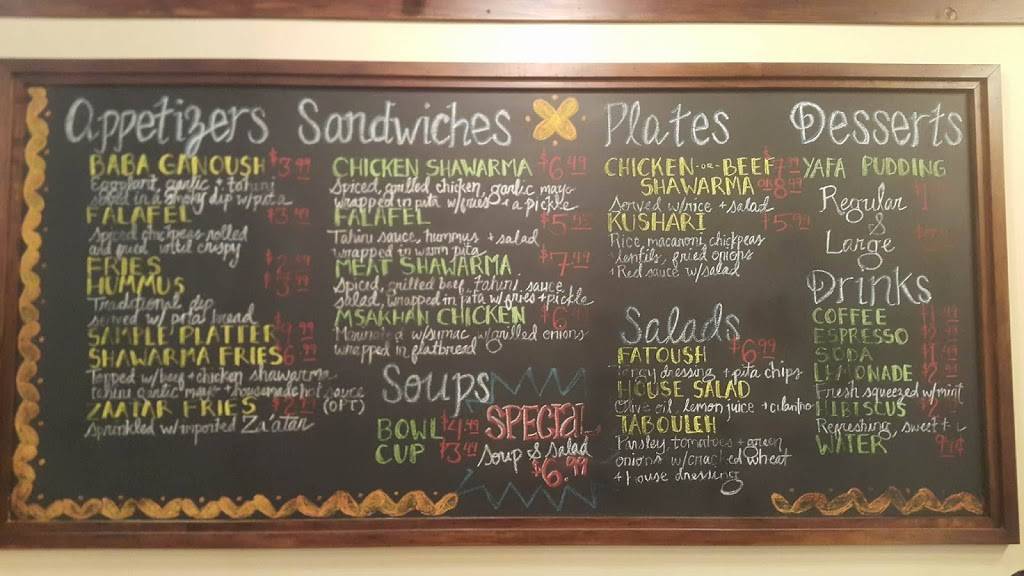 Appetizers
BABA GANOUSH $3.99
Eggplant, garlic + tahini
served in a smoky dip w/pita
FALAFEL $3.49
spiced chickpeas rolled
and fried until crispy
FRIES
HUMMUS $3.99
Traditional dip
served w/pita bread
SAMPLE PLATTER $9.99
SHAWARMA FRIES 6.99
Topped w/beef + chicken shawarma
tahini garlic mayo + homemade hot sauce
(OPT)
ZAATAR FRIES
sprinkled w/imported Za'atar
Sandwiches
CHICKEN SHAWARMA $6.49
Spiced, grilled chicken, garlic mayo
wrapped in pita w/fries + a pickle
FALAFEL
Tahini sauce, hummus + salad
wrapped in warm pita
MEAT SHAWARMA $7.49
Spiced, grilled beef, tahini sauce
salad, wrapped in pita w/fries + pickle
MSAKHAN CHICKEN
Marinated w/sumac w/grilled onions
wrapped in flatbread
Soups
BOWL $4.99
CUP $3.99
SPECIAL
Soup & Salad
$6.99
Plates
CHICKEN -or- BEEF $7.99
SHAWARMA or 8.99
Served w/rice + salad
KUSHARI $5.99
Rice, macaroni, chickpeas
+ lentils, fried onions
+ Red sauce w/salad
Salads
FATOUSH $6.99
Tangy dressing + pita chips
HOUSE SALAD
Olive oil, lemon juice + cilantro
TABOULEH
Parsley, tomatoes + green
onions w/cracked wheat
+ house dressing
Desserts
YAFA PUDDING
Regular
&
Large
Drinks
COFFEE
ESPRESSO
SODA
LEMONADE
Fresh squeezed w/mint
HIBISCUS
Refreshing, sweet +
WATER